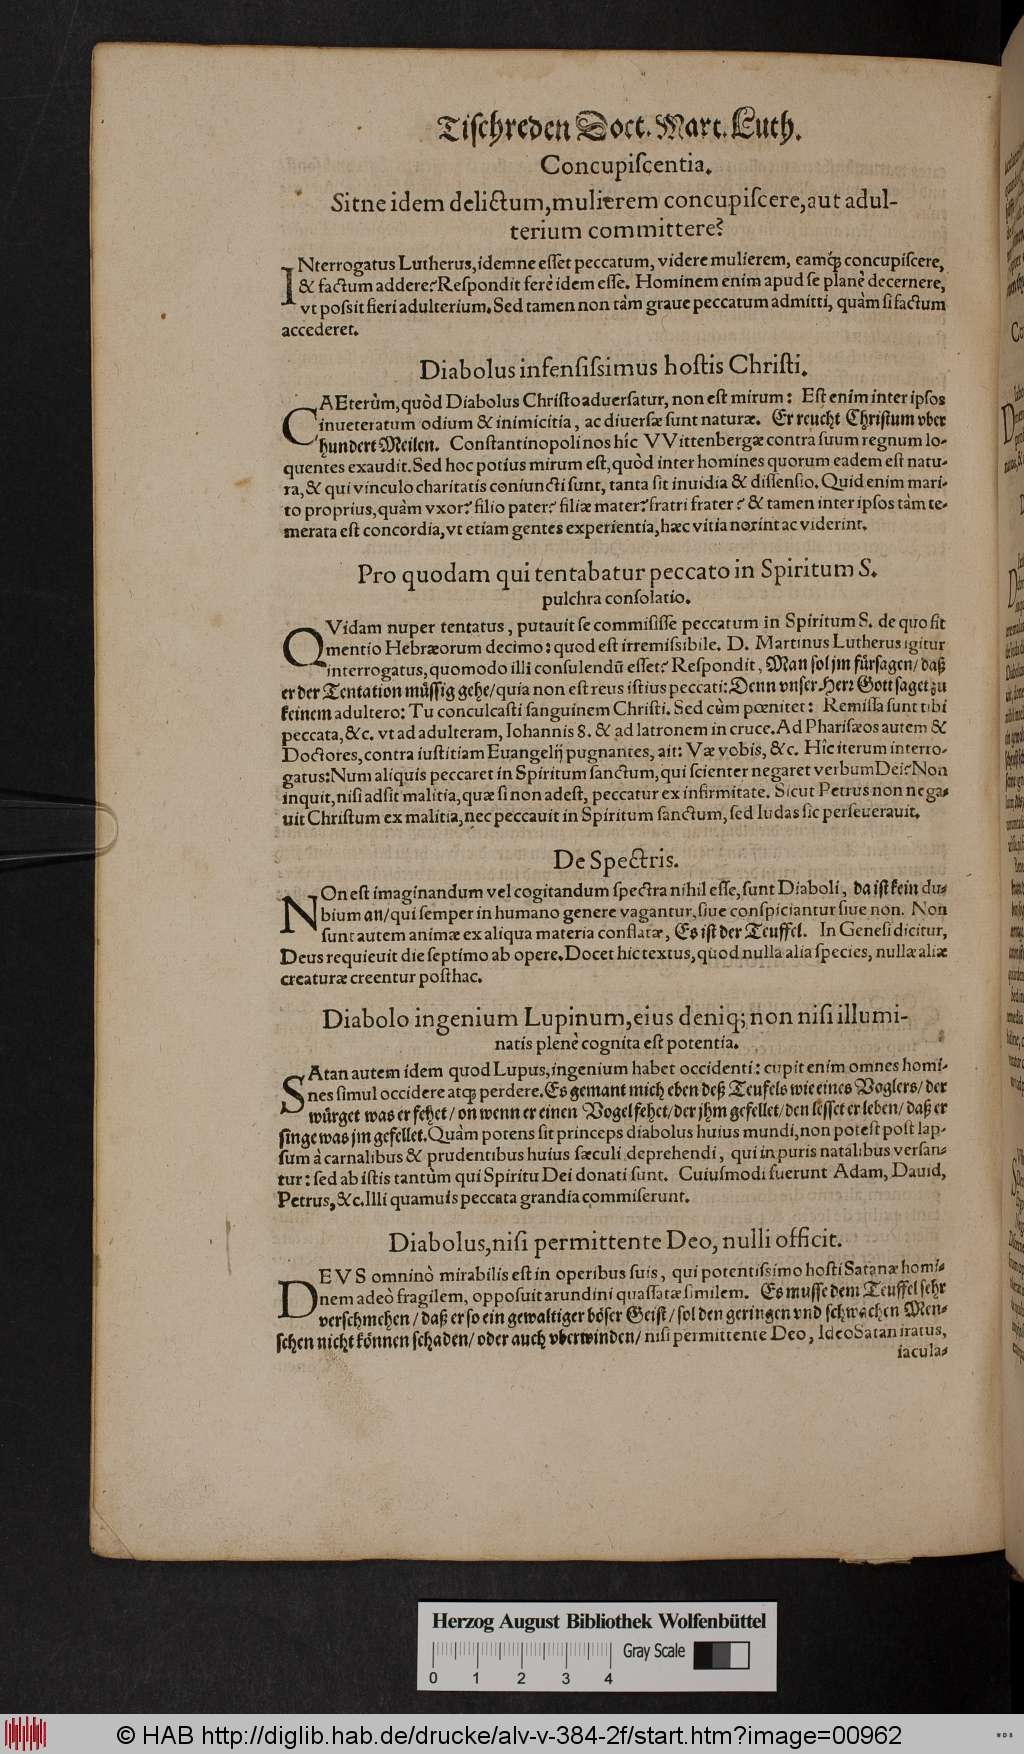 Tiſchreden Doct. Mart. Luth.
Concupiſcentia.
Sitne idem delictum, mulierem concupiſcere, aut adul-
terium committere?
INterrogatus Lutherus, idemne eſſet peccatum, videre mulierem, eamq́; concupiſcere,
& factum addere? Reſpondit ferè idem eſſe. Hominem enim apud ſe planè decernere,
vt poſsit fieri adulterium. Sed tamen non tàm graue peccatum admitti, quàm ſi factum
accederet.
Diabolus infenſiſsimus hoſtis Chriſti.
CAEterùm, quòd Diabolus Chriſto aduerſatur, non eſt mirum: Eſt enim inter ipſos
inueteratum odium & inimicitia, ac diuerſæ ſunt naturæ. Er reucht Chriſtum vber
hundert Meilen. Conſtantinopoli nos hîc VVittenbergæ contra ſuum regnum lo-
quentes exaudit. Sed hoc potius mirum eſt, quòd inter homines quorum eadem eſt natu-
ra, & qui vinculo charitatis coniuncti ſunt, tanta ſit inuidia & diſſenſio. Quid enim mari-
to proprius, quàm vxor? filio pater? filiæ mater? fratri frater? & tamen inter ipſos tàm te-
merata eſt concordia, vt etiam gentes experientia, hæc vitia norint ac viderint.
Pro quodam qui tentabatur peccato in Spiritum S.
pulchra conſolatio.
QVidam nuper tentatus, putauit ſe commiſiſſe peccatum in Spiritum S. de quo fit
mentio Hebræorum decimo: quod eſt irremiſsibile. D. Martinus Lutherus igitur
interrogatus, quomodo illi conſulendū eſſet? Reſpondit, Man ſol jm fürſagen/ daß
er der Tentation müſſig gehe/ quia non eſt reus iſtius peccati: Denn vnſer Herr Gott ſaget zu
keinem adultero: Tu conculcaſti ſanguinem Chriſti. Sed cùm pœnitet: Remiſſa ſunt tibi
peccata, &c. vt ad adulteram, Iohannis 8. & ad latronem in cruce. Ad Phariſæos autem &
Doctores, contra iuſtitiam Euangelij pugnantes, ait: Væ vobis, &c. Hîc iterum interro-
gatus: Num aliquis peccaret in Spiritum ſanctum, qui ſcienter negaret verbum Dei? Non
inquit, niſi adſit malitia, quæ ſi non adeſt, peccatur ex infirmitate. Sicut Petrus non nega-
uit Chriſtum ex malitia, nec peccauit in Spiritum ſanctum, ſed Iudas ſic perſeuerauit.
De Spectris.
NOn eſt imaginandum vel cogitandum ſpectra nihil eſſe, ſunt Diaboli, da iſt kein du-
bium an/ qui ſemper in humano genere vagantur, ſiue conſpiciantur ſiue non. Non
ſunt autem animæ ex aliqua materia conflatæ, Es iſt der Teuffel. In Geneſi dicitur,
Deus requieuit die ſeptimo ab opere. Docet hic textus, quòd nulla alia ſpecies, nullæ aliæ
creaturæ creentur poſthac.
Diabolo ingenium Lupinum, eius deniq; non niſi illumi-
natis plenè cognita eſt potentia.
SAtan autem idem quod Lupus, ingenium habet occidenti: cupit enim omnes homi-
nes ſimul occidere atq; perdere. Es gemant mich eben deß Teufels wie eines Voglers/ der
würget was er fehet/ on wenn er einen Vogel fehet/ der jhm gefellet/ den leſſet er leben/ daß er
ſinge was jm gefellet. Quàm potens ſit princeps diabolus huius mundi, non poteſt poſt lap-
ſum à carnalibus & prudentibus huius ſæculi deprehendi, qui in puris natalibus verſan-
tur: ſed ab iſtis tantùm qui Spiritu Dei donati ſunt. Cuiuſmodi fuerunt Adam, Dauid,
Petrus, &c. Illi quamuis peccata grandia commiſerunt.
Diabolus, niſi permittente Deo, nulli officit.
DEVS omninò mirabilis eſt in operibus ſuis, qui potentiſsimo hoſti Satanæ homi-
nem adeò fragilem, oppoſuit arundini quaſſatæ ſimilem. Es muſſe dem Teuffel ſehr
verſchmehen/ daß er ſo ein gewaltiger böſer Geiſt/ ſol den geringen vnd ſchwachen Men-
ſchen nicht können ſchaden/ oder auch vberwinden/ niſi permittente Deo, Ideo Satan iratus,
iacula-
Herzog August Bibliothek Wolfenbüttel
Gray Scale
0 1 2 3 4
© HAB http://diglib.hab.de/drucke/alv-v-384-2f/start.htm?image=00962